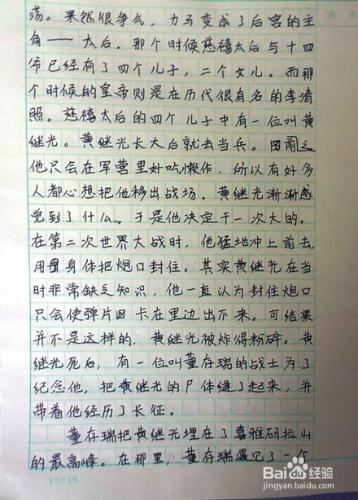 荡。果然很争气，力马变成了后宫的主
角——太后。那个时候慈禧太后与十四
爷已经有了四个儿子，二个女儿。而那
个时候的皇帝则是在历代很有名的李清
照。慈禧太后的四个儿子中有一位叫黄
继光。黄继光长大后就去当兵。因为
他只会在军营里好吃懒作，所以有好多
人都心想把他移出战场。黄继光渐渐感
觉到了什么。于是他决定干一次大的。
在第二次世界大战时，他猛地冲上前去，
用身体把炮口封住。其实黄继光在当
时非常缺乏知识，他一直认为封住炮口
只会使弹片卡在里边出不来。可结果
并不是这样的，黄继光被炸得粉碎。黄
继光死后，有一位叫董存瑞的战士为了
纪念他，把黄继光的尸体缝了起来，并
带着他经历了长征。
董存瑞把黄继光埋在了喜雅码拉山
的最高峰。在那里，董存瑞遇见了一个
Baidu经验
jingyan.baidu.com